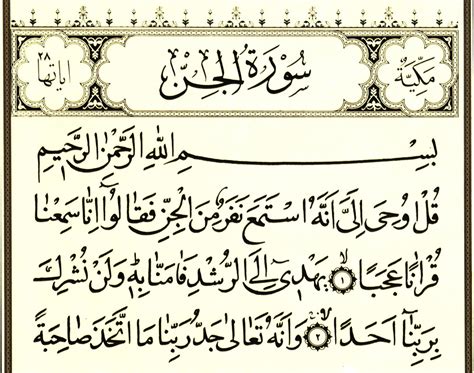 مكية سورة الجن اياتها ٢٨
بسم الله الرحمن الرحيم
قُلْ اُو۫حِىَ اِلَىَّ اَنَّهُ اسْتَمَعَ نَفَرٌ مِنَ الْجِنِّ فَقَالُٓوا اِنَّا سَمِعْنَا
قُرْاٰنًا عَجَبًا ١ يَهْدِىٓ اِلَى الرُّشْدِ فَاٰمَنَّا بِهٖ وَلَنْ نُشْرِكَ
بِرَبِّنَٓا اَحَدًا ٢ وَاَنَّهُ تَعَالٰى جَدُّ رَبِّنَا مَا اتَّخَذَ صَاحِبَةً